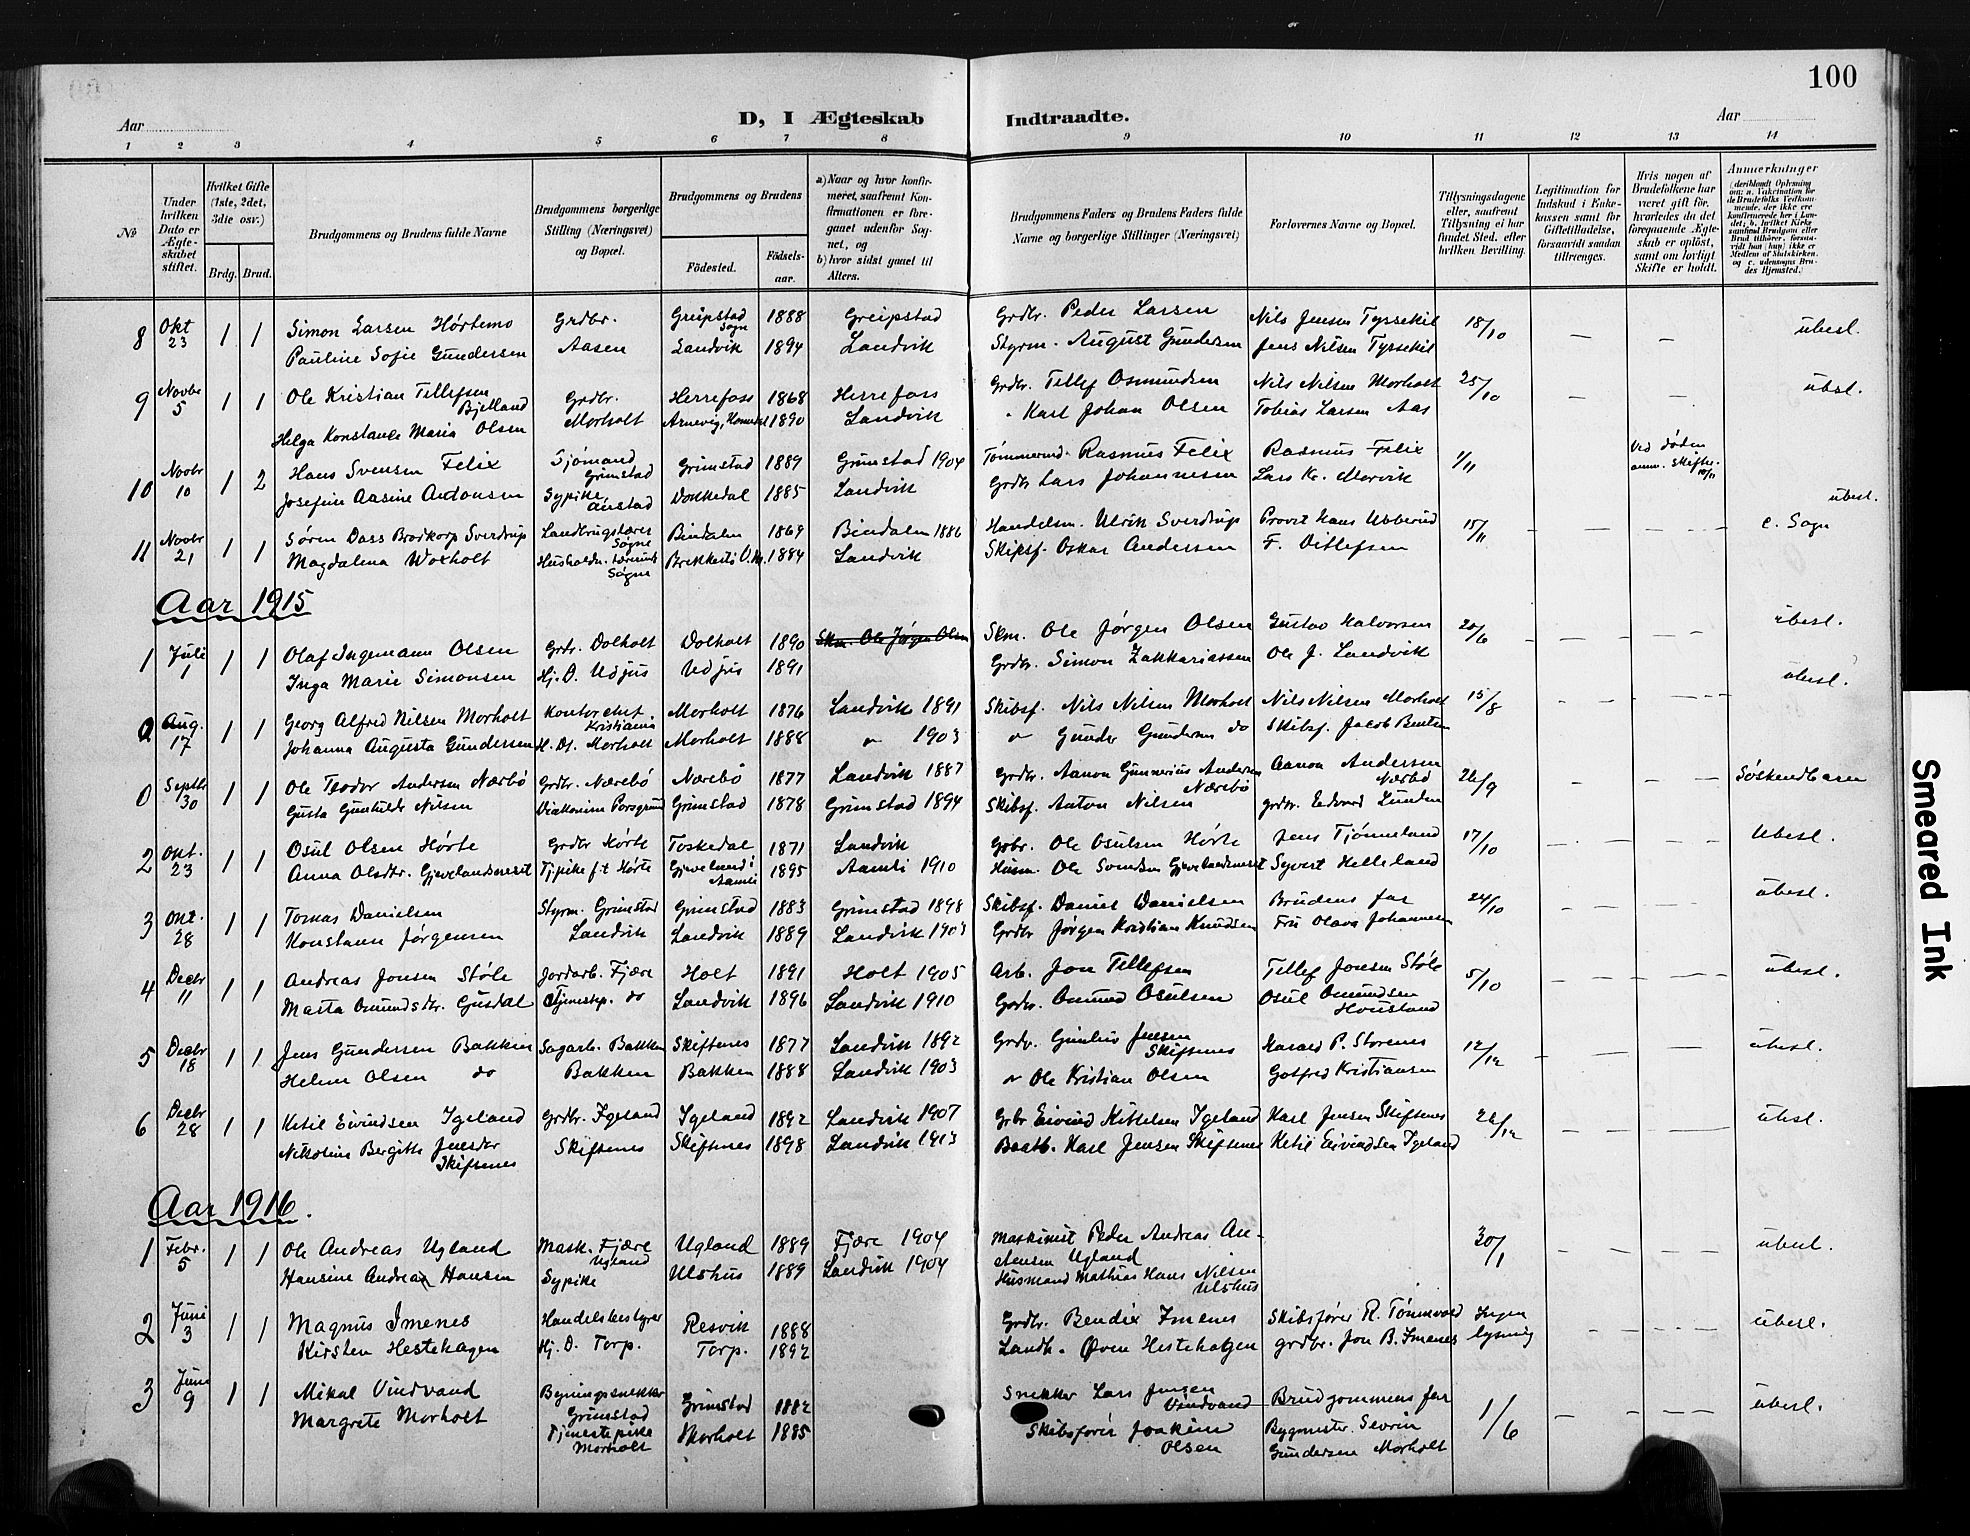 100
Aar
D, I Ægteskab Indtraadte.
Aar
1 2 3 4 5 6 7 8 9 10 11 12 13 14
№
Under hvilken Dato er Ægteskabet stiftet.
Hvilket Gifte (1ste, 2det, 3die osv.)
Brdg. Brud.
Brudgommens og Brudens fulde Navne
Brudgommens borgerlige Stilling (Næringsvei) og Bopæl.
Brudgommens og Brudens
Födested. Födselsaar.
a) Naar og hvor konfirmeret, saafremt Konfirmationen er foregaaet udenfor Sognet, og
b) hvor sidst gaaet til Alters.
Brudgommens Faders og Brudens Faders fulde Navne og borgerlige Stillinger (Næringsvei)
Forlovernes Navne og Bopæl.
Tillysningsdagene eller, saafremt Tillysning ei har fundet Sted, efter hvilken Bevilling.
Legitimation for Indskud i Enkekassen samt for Giftetilladelse, forsaavidt saadan tiltrænges.
Hvis nogen af Brudefolkene har været gift før, hvorledes da det foregaaende Ægteskab er opløst, samt om lovligt Skifte er holdt.
Anmerkninger
8 Okt 23 1 1 Simon Larsen Hørtemo Grdbr. Greipstad Sogn 1888 Greipstad Grdbr. Peder Larsen Nils Jensen Tyssekil 18/10 — — ubesl.
Pauline Sofie Gundersen Aasen Landvik 1894 Landvik Styrm. August Gundersen Jens Nilsen Tyssekil
9 Novbr 5 1 1 Ole Kristian Tellefsen Bjelland Grdbr. Herrefoss 1868 Herrefoss Grdbr. Tellef Osmundsen Nils Nilsen Morholt 25/10 — — ubesl.
Helga Konstance Maria Olsen Morholt Arnevig, 1890 Landvik " Karl Johan Olsen Tobias Larsen Aas
10 Novbr 10 1 2 Hans Svensen Felix Sjømand Grimstad Grimstad 1889 Grimstad 1904 Tømmermd. Rasmus Felix Rasmus Felix 1/11 Ved døden anm. Skifte
Josefine Aasine Antonsen Sypike Dokkedal 1885 Landvik Grdbr Lars Johannesen Lars K. Morvik ubesl.
11 Novbr 21 1 1 Søren Dass Brodkorp Sverdrup Landbrugslærer Søgne Bindalen 1869 Bindalen 1886 Handelsm. Ulrik Sverdrup Provst Hans Ubberud 15/11 — — — c. Sogn
Magdalena Woxholt Husholdn. Søgne 1884 Landvik Skipsf. Oskar Andersen F. Ditlefsen
Aar 1915
1 Juli 1 1 1 Olaf Ingemann Olsen Grdbr. Dolholt Dolholt 1890 Skm. Ole Jørgen Olsen Skm. Ole Jørgen Olsen Gustav Halvorsen 20/6 — — — ubesl.
Inga Marie Simonsen Hj. D. Udjus Udjus 1891 Grdbr. Simon Zakkariassen Ole J. Landvik
Aug. 17 1 1 Georg Alfred Nilsen Morholt Kontorchef Kristiania Morholt 1876 Landvik 1891 Skibsf. Nils Nilsen Morholt Nils Nilsen Morholt 15/8 — — — ubesl.
Johanna Augusta Gundersen H. D. Morholt Morholt 1888 " 1903 " Gunder Gundersen do Skibsf. Jacob Bentsen
0 Septbr 30 1 1 Ole Teodor Andersen Nærbö Grdbr. Nærebö Nærebö 1877 Landvik 1887 Grdbr. Aanon Gunnerius Andersen Nærebö Aanon Andersen Nærbö 26/9 — — — Söskendbarn
Gusta Gunhilde Nilsen Diakonisse Porsgrund Grimstad 1878 Grimstad 1894 Skibsf. Anton Nilsen grdbr. Edvard Lunden
2 Okt. 23 1 1 Osul Olsen Hørte Grdbr Hørte Toskedal 1871 Landvik Gdbr. Ole Osulsen Hørte Jens Tjønneland 17/10 — — — Ubesl.
Anna Olsdtr. Gjevelandseneset Tjpike f.t. Hørte Gjeveland i Aamli 1895 Aamli 1910 Husm. Ole Svendsen Gjevelandseneset Syvert Helleland
3 Okt. 28 1 1 Tomas Danielsen Styrm. Grimstad Grimstad 1883 Grimstad 1898 Skibsf. Daniel Danielsen Brudens far 24/10 — — — ubesl.
Konstanse Jørgensen Landvik Landvik 1889 Landvik 1903 Grdbr Jørgen Kristian Knudsen Fru Olava Johannesen
4 Decbr 11 1 1 Andreas Jonsen Støle Jordarb. Fjære Holt 1891 Holt 1905 Arb. Jon Tellefsen Tellef Jonsen Støle 5/10 — — — ubesl.
Marta Omundsdtr. Gusdal Tjenestep. do Landvik 1896 Landvik 1910 Grdbr. Omund Osulsen Osul Omundsen Housland
5 Decbr 18 1 1 Jens Gundersen Bakken Sagarb. Bakken Skiftenes 1877 Landvik 1892 Grdbr. Jensen Skiftenes Harald P. Storenes 12/12 — — — ubesl.
Helene Olsen do Bakken Bakken 1888 Landvik 1903 " Ole Kristian Olsen Gotfred Kristiansen
6 Decbr 28 1 1 Ketil Eivindsen Igeland Grdbr. Igeland Igeland 1892 Landvik 1907 Grbr Eivind Kittelsen Igeland Karl Jensen Skiftenes 26/12 — — — ubesl.
Nikoline Bergitte Jensdtr Skiftenes Skiftenes Skiftenes 1898 Landvik 1913 Baatb. Karl Jensen Skiftenes Ketil Eivindsen Igeland
Aar 1916.
1 Febr. 5 1 1 Ole Andreas Ugland Mask. Fjære Ugland Ugland 1889 Fjære 1904 Maskinist Peder Andreas Antensen Ugland 30/1 — — — ubesl.
Hansine Andrea Hansen Sypike Ulshus 1889 Landvik 1904 Husmand Mathias Hans Nilsen Ulshus
2 Juni 3 1 1 Magnus Imenes Handelsbestyrer Resvik 1888 Grdbr. Bendix Imenes Skibsfører R. Tønnevold Ingen lysning — — — ubesl.
Kirsten Hestehagen Hj. D. Torp. Torp. 1892 Landh. Øven Hestehagen grdbr. Jon B. Imenes
3 Juni 9 1 1 Mikal Vindvand Bygningssnekker Grimstad Grimstad 1882 Snekker Lars Jensen Vindvand Brudgommens far 1/6 — — — ubesl.
Margrete Morholt Tjenestepike Morholt Morholt 1885 Skibsfører Joakim Olsen Bygmester Severin Gundersen Morholt
Smeared Ink